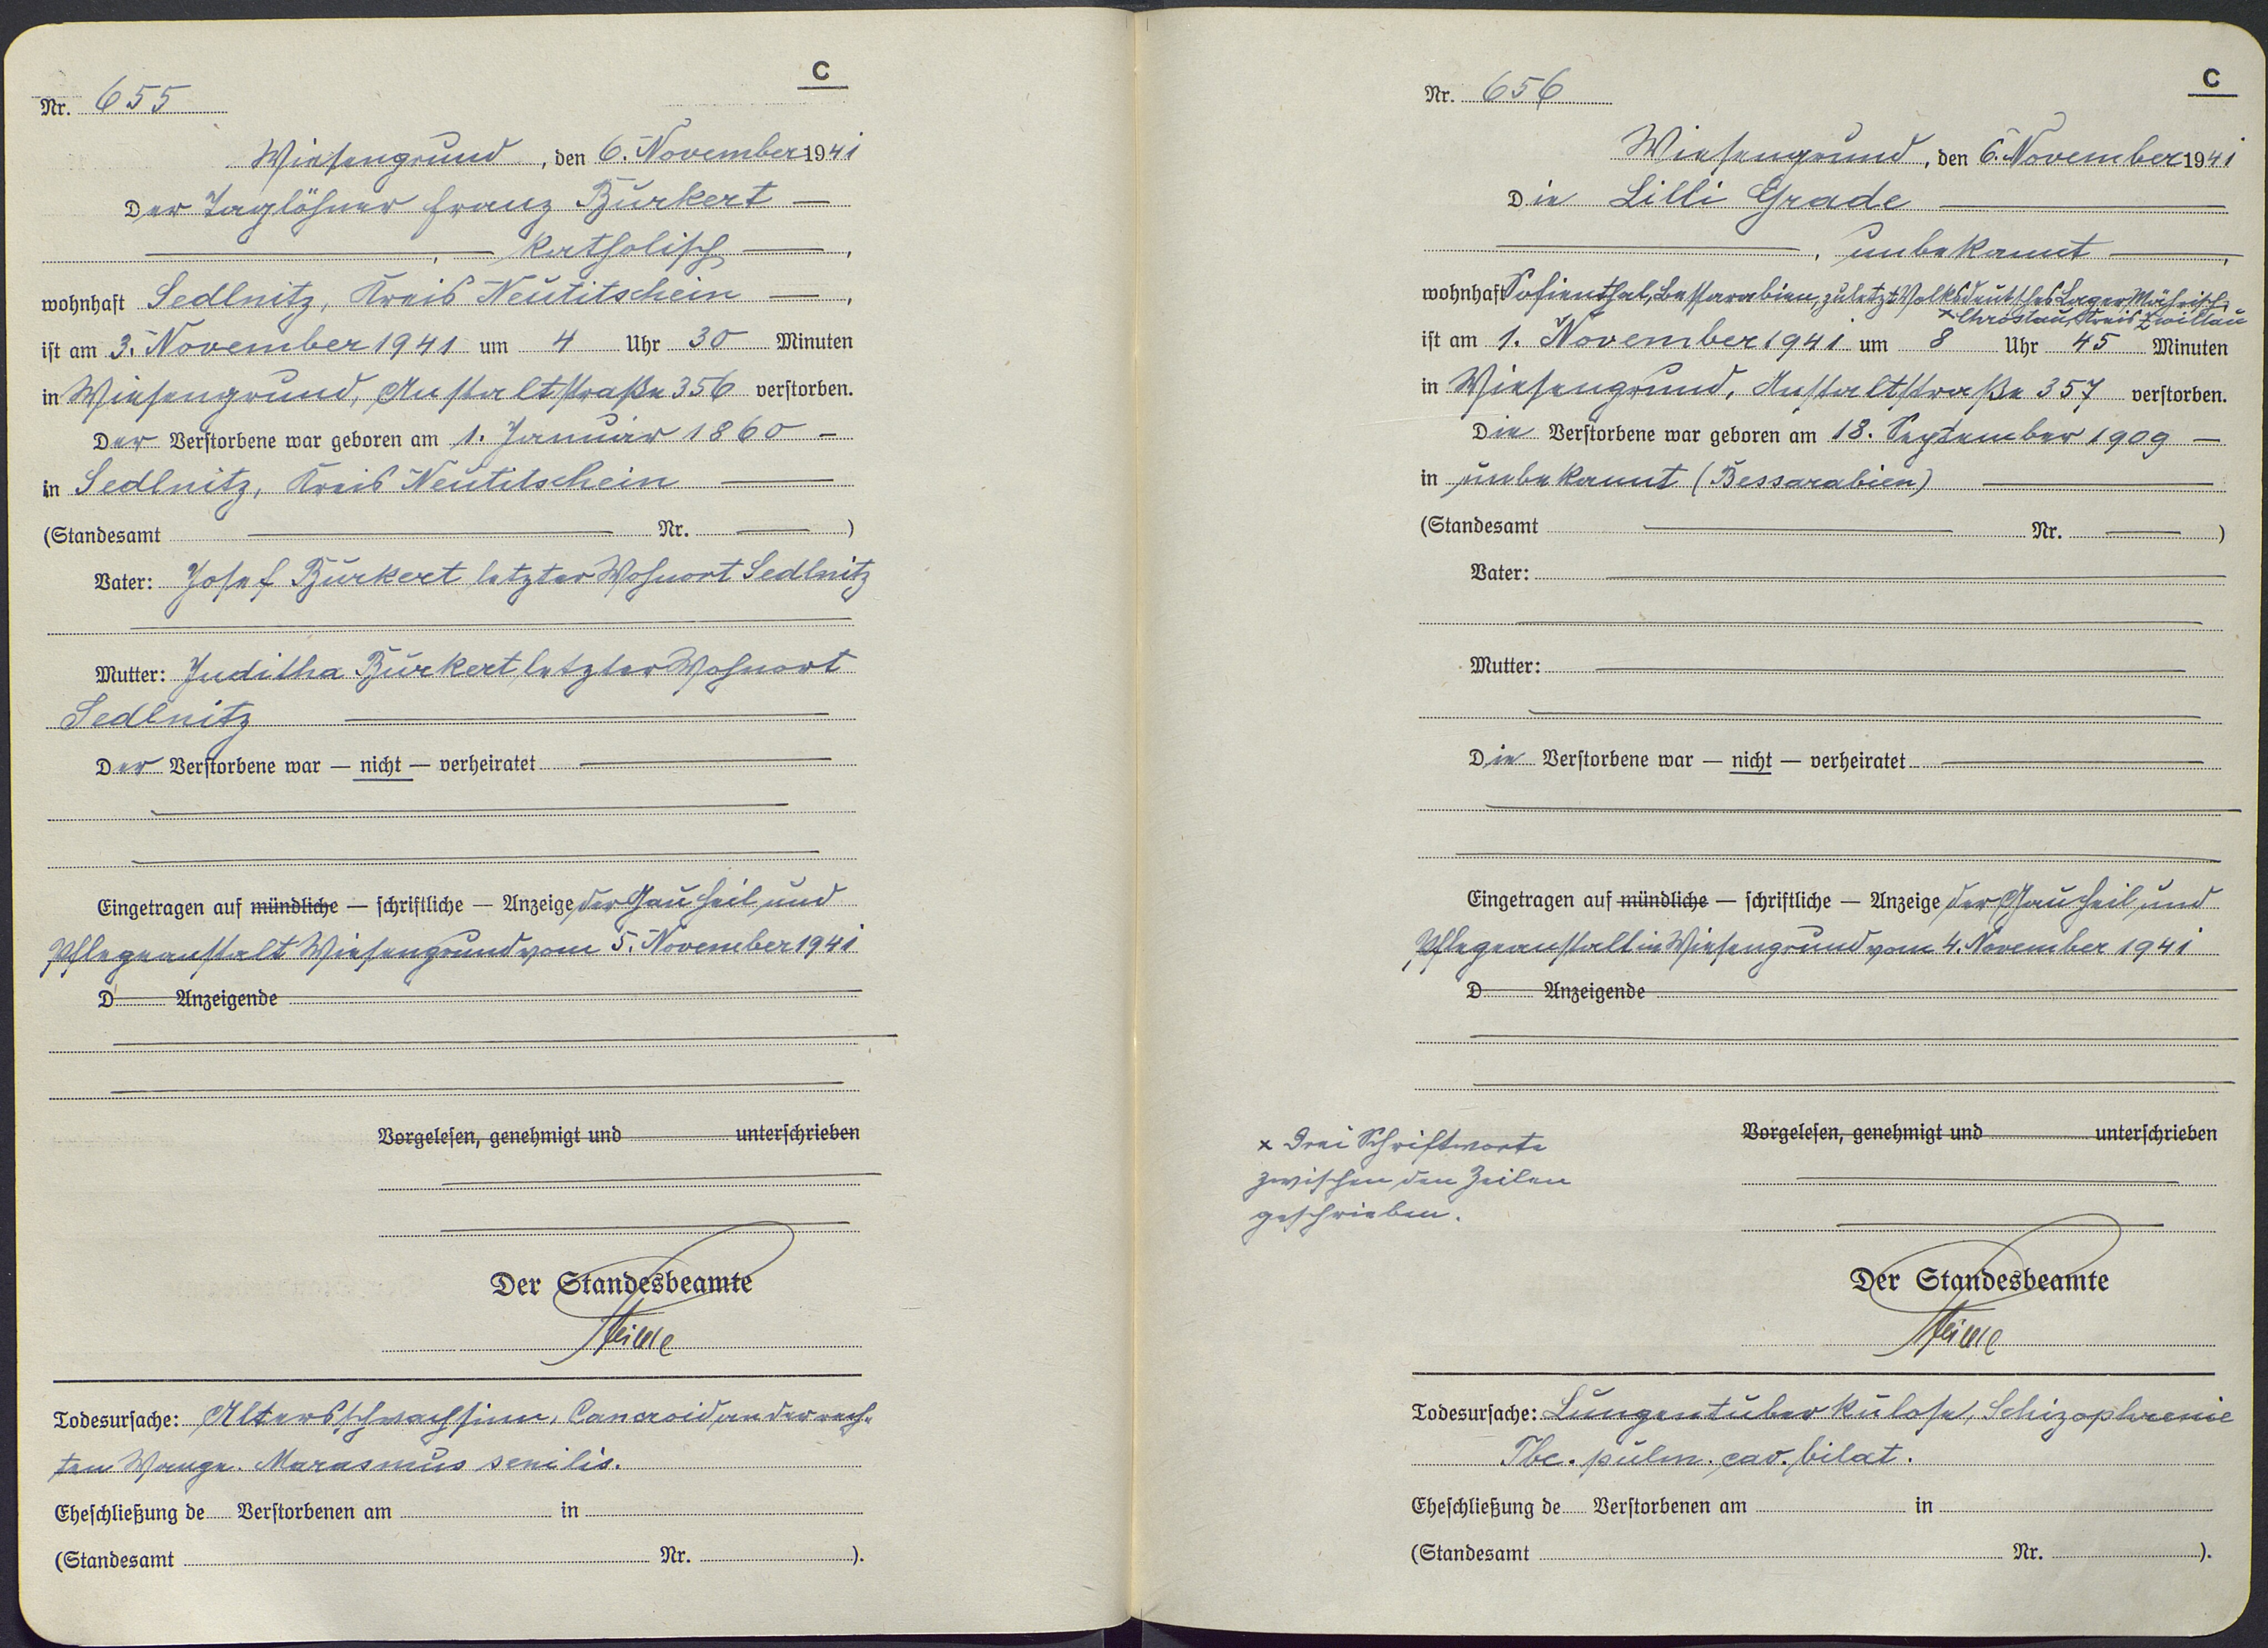 C
Nr. 655
Wiesengrund, den 6. November 1941
Der Taglöhner Franz Burkert —
—, — katholisch —,
wohnhaft Sedlnitz, Kreis Neutitschein —,
ist am 3. November 1941 um 4 Uhr 30 Minuten
in Wiesengrund, Anstaltstraße 356 verstorben.
Der Verstorbene war geboren am 1. Januar 1860 —
in Sedlnitz, Kreis Neutitschein —
(Standesamt — Nr. — )
Vater: Josef Burkert letzter Wohnort Sedlnitz
Mutter: Juditha Burkert, letzter Wohnort
Sedlnitz —
Der Verstorbene war — nicht — verheiratet —
Eingetragen auf mündliche — schriftliche — Anzeige der Gau Heil und
Pflegeanstalt Wiesengrund vom 5. November 1941
D Anzeigende
Vorgelesen, genehmigt und unterschrieben
Der Standesbeamte
Todesursache: Altersschwachsinn, Cancroid an der rech-
ten Wange. Marasmus senilis.
Eheschließung de Verstorbenen am in
(Standesamt Nr. ).
C
Nr. 656
Wiesengrund, den 6. November 1941
Die Lilli Grade —
—, unbekannt —,
wohnhaft Sofienthal, Bessarabien, zuletzt Volksdeutsches Lager Mährisch
x Chrostau, Kreis Zwittau
ist am 1. November 1941 um 8 Uhr 45 Minuten
in Wiesengrund, Anstaltstraße 357 verstorben.
Die Verstorbene war geboren am 18. September 1909 —
in unbekannt (Bessarabien) —
(Standesamt — Nr. — )
Vater: —
Mutter: —
Die Verstorbene war — nicht — verheiratet —
Eingetragen auf mündliche — schriftliche — Anzeige der Gau Heil und
Pflegeanstalt in Wiesengrund vom 4. November 1941
D Anzeigende
x Drei Schriftworte
zwischen den Zeilen
geschrieben.
Vorgelesen, genehmigt und unterschrieben
Der Standesbeamte
Todesursache: Lungentuberkulose, Schizophrenie
Tbc. pulm. cav. bilat.
Eheschließung de Verstorbenen am in
(Standesamt Nr. ).